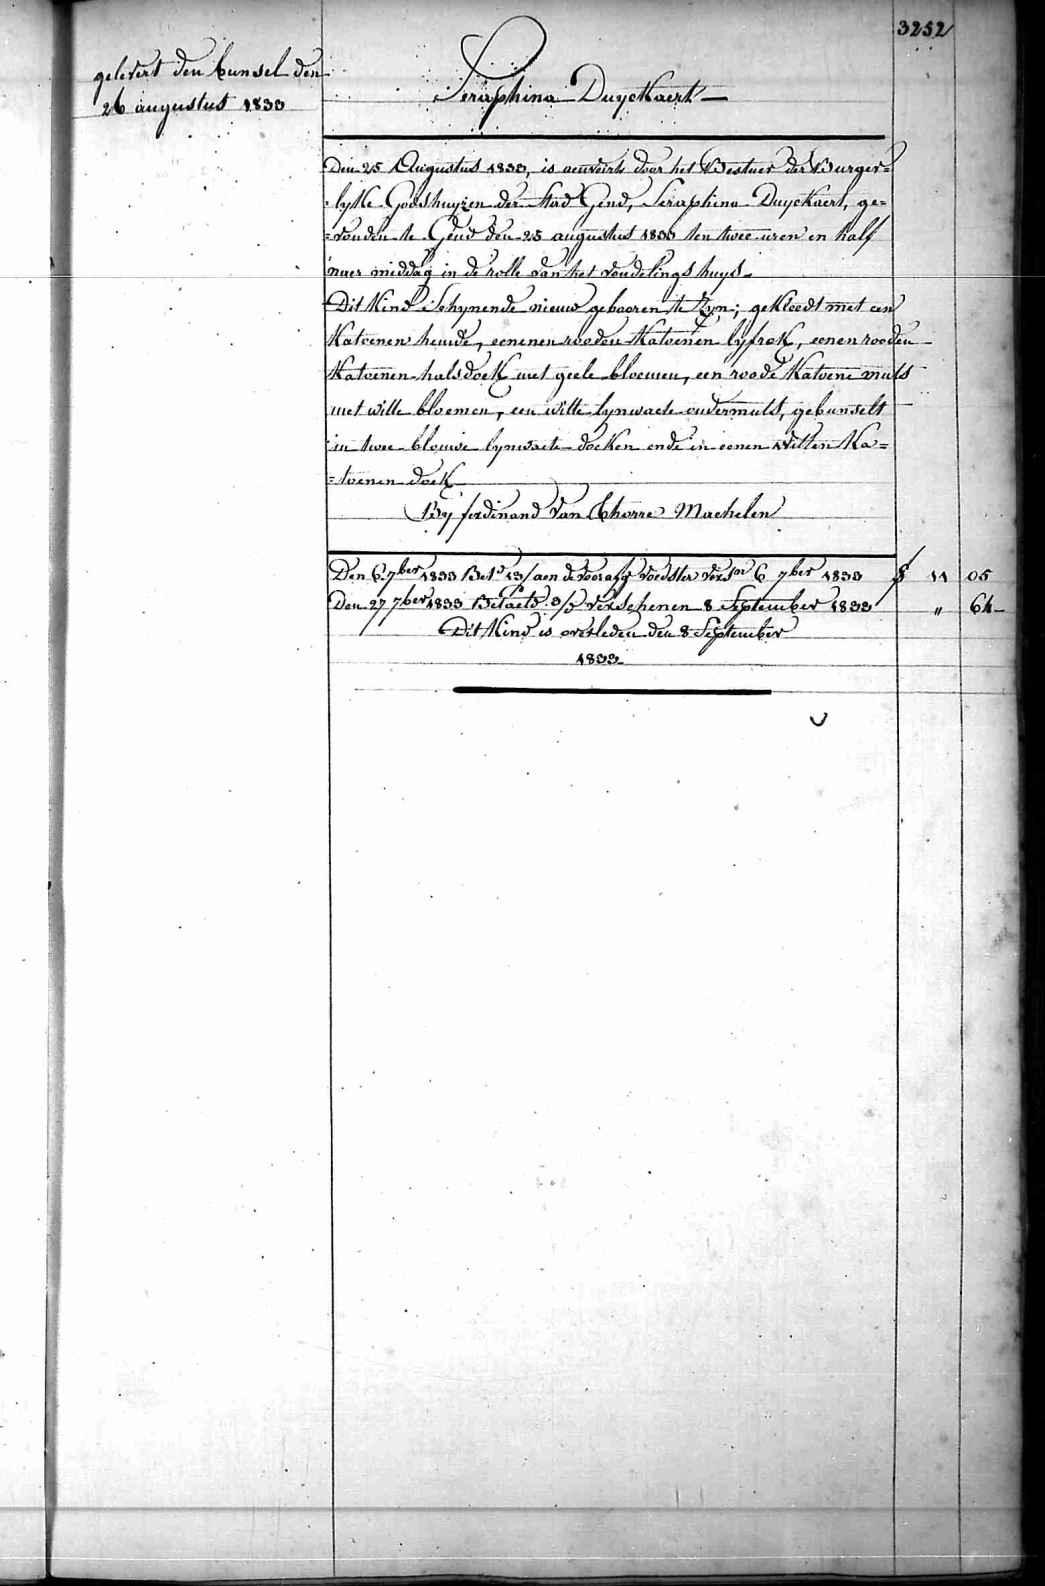 3252
gelevert den bunsel den
26 augustus 1833
Seraphina Duyckaert
Den 25 Augustus 1833, is aenveirt door het Bestuer der Burger=
lyke Godshuyzen der Stad Gend, Seraphina Duyckaert, ge=
=vonden te Gend den 25 augustus 1833 ten twee uren en half
naer middag in de rolle van het vondelingshuys
Dit Kind Schynende nieuw gebooren te Zyn; gekleedt met een
Katoenen hemde, eenenen rooden Katoenen lyfrok, eenen rooden
Katoenen halsdoek met geele bloemen, een roode Katoene muts
met witte bloemen, een witte lynwaete ondermuts, gebunselt
in twee blouwe lynwaete doeken ende in eenen witten Ka=
=toenen doek
By ferdinand Van Thorre Machelen
Den 6 7ber 1833 Bet.d 13/ aen de voorafg voedster vers.n 6 7ber 1833 11 05
Den 27 7ber 1833 Betaeld 3/ verschenen 8 September 1833 " 64
Dit Kind is overleden den 8 September
1833